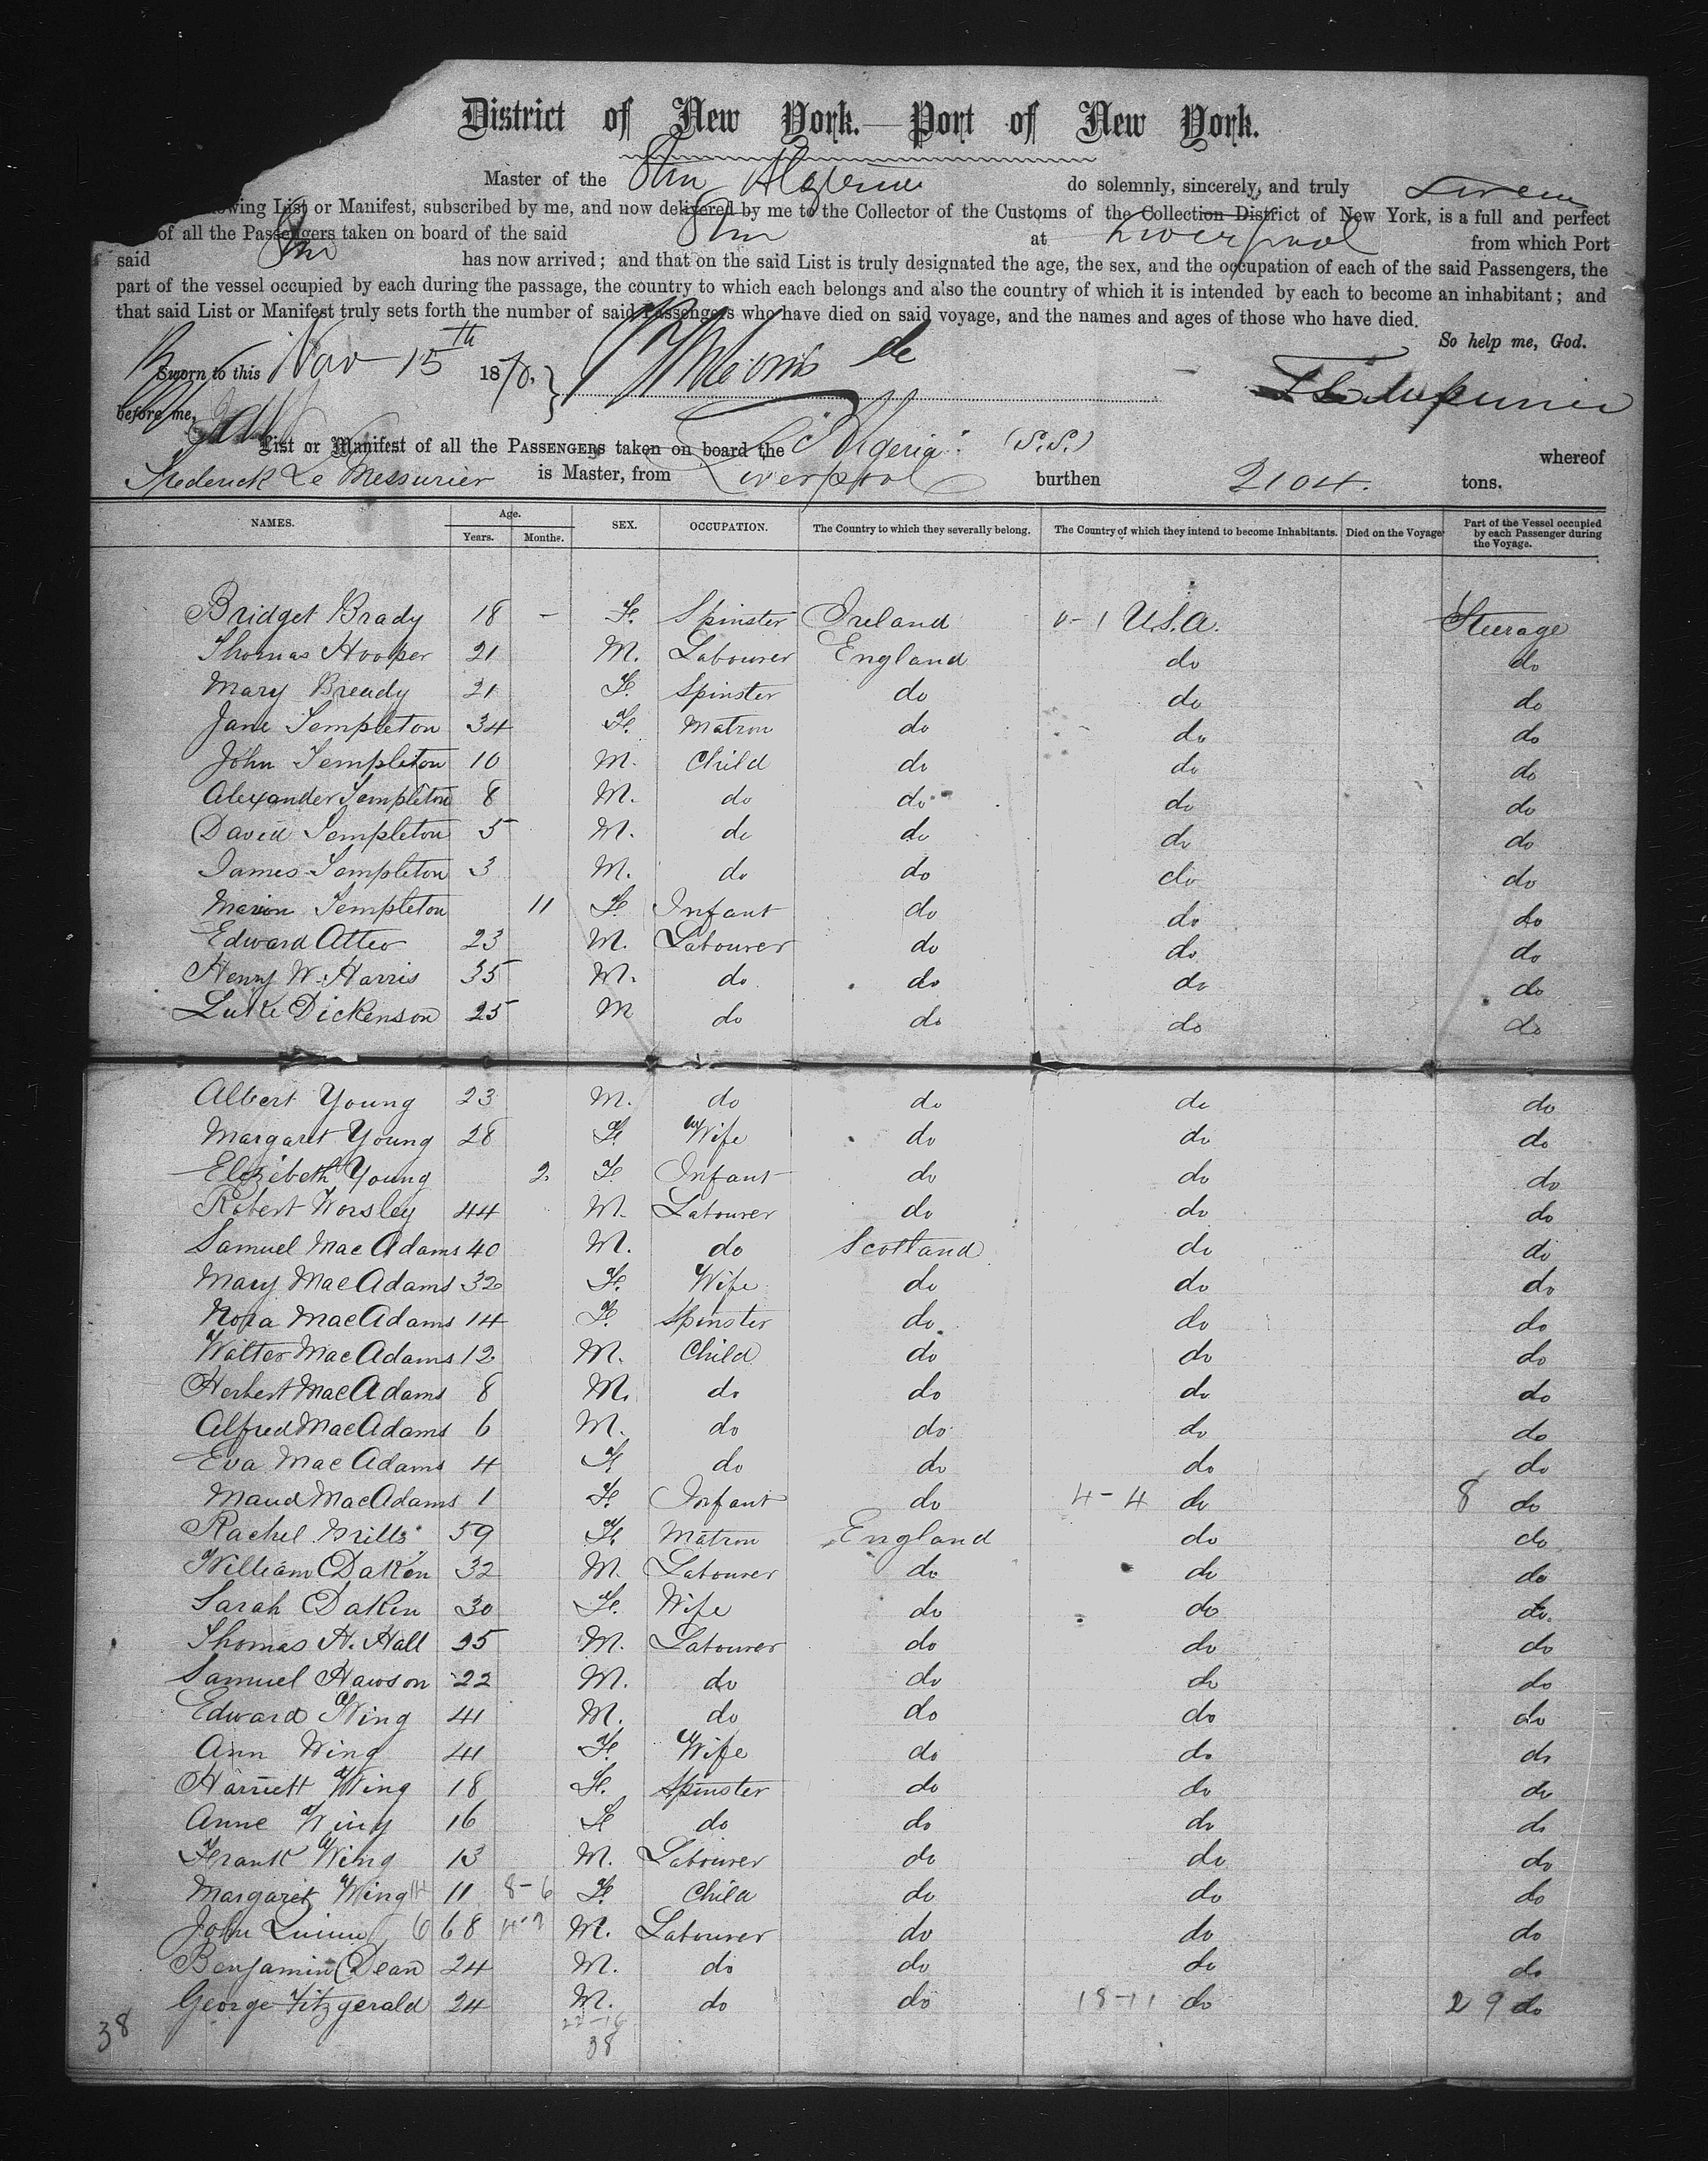 District of New York.—Port of New York.
Master of the Str Algeria do solemnly, sincerely, and truly swear
following List or Manifest, subscribed by me, and now delivered by me to the Collector of the Customs of the Collection District of New York, is a full and perfect
of all the Passengers taken on board of the said Str at Liverpool from which Port
said Str has now arrived; and that on the said List is truly designated the age, the sex, and the occupation of each of the said Passengers, the
part of the vessel occupied by each during the passage, the country to which each belongs and also the country of which it is intended by each to become an inhabitant; and
that said List or Manifest truly sets forth the number of said Passengers who have died on said voyage, and the names and ages of those who have died.
So help me, God.
Sworn to this Nov 15th 1870,
before me,
List or Manifest of all the PASSENGERS taken on board the "Algeria" (S.S.) whereof
Frederick Le Messurier is Master, from Liverpool burthen 2104. tons.
NAMES. Age. Years. Months. SEX. OCCUPATION. The Country to which they severally belong. The Country of which they intend to become Inhabitants. Died on the Voyage Part of the Vessel occupied by each Passenger during the Voyage.
Bridget Brady 18 – F. Spinster Ireland 0-1 U.S.A. Steerage
Thomas Hooper 21 M. Labourer England do do
Mary Bready 21 F. Spinster do do do
Jane Templeton 34 F. Matron do do do
John Templeton 10 M. Child do do do
Alexander Templeton 8 M. do do do do
David Templeton 5 M. do do do do
James Templeton 3 M. do do do do
Marion Templeton 11 F. Infant do do do
Edward Atter 23 M. Labourer do do do
Henry W. Harris 35 M. do do do do
Luke Dickenson 25 M do do do do
Albert Young 23 M. do do do do
Margaret Young 28 F. Wife do do do
Elezibeth Young 2. F. Infant do do do
Robert Worsley 44 M. Labourer do do do
Samuel MacAdams 40 M. do Scotland do do
Mary MacAdams 32 F. Wife do do do
Nora MacAdams 14 F. Spinster do do do
Walter MacAdams 12 M. Child do do do
Herbert MacAdams 8 M. do do do do
Alfred MacAdams 6 M. do do do do
Eva MacAdams 4 F. do do do do
Maud MacAdams 1 F. Infant do 4-4 do 8 do
Rachel Mills 59 F. Matron England do do
William Daken 32 M. Labourer do do do
Sarah Daken 30 F. Wife do do do
Thomas H. Hall 25 M. Labourer do do do
Samuel Hawson 22 M. do do do do
Edward Wing 41 M. do do do do
Ann Wing 41 F. Wife do do do
Harriett Wing 18 F. Spinster do do do
Anne Wing 16 F do do do do
Frank Wing 13 M. Labourer do do do
Margaret Wing 11 8-6 F. Child do do do
John Quinn 6 68 M. Labourer do do do
Benjamin Dean 24 M. do do do do
George Fitzgerald 24 M. do do 18-11 do 29 do
38 22-16
38